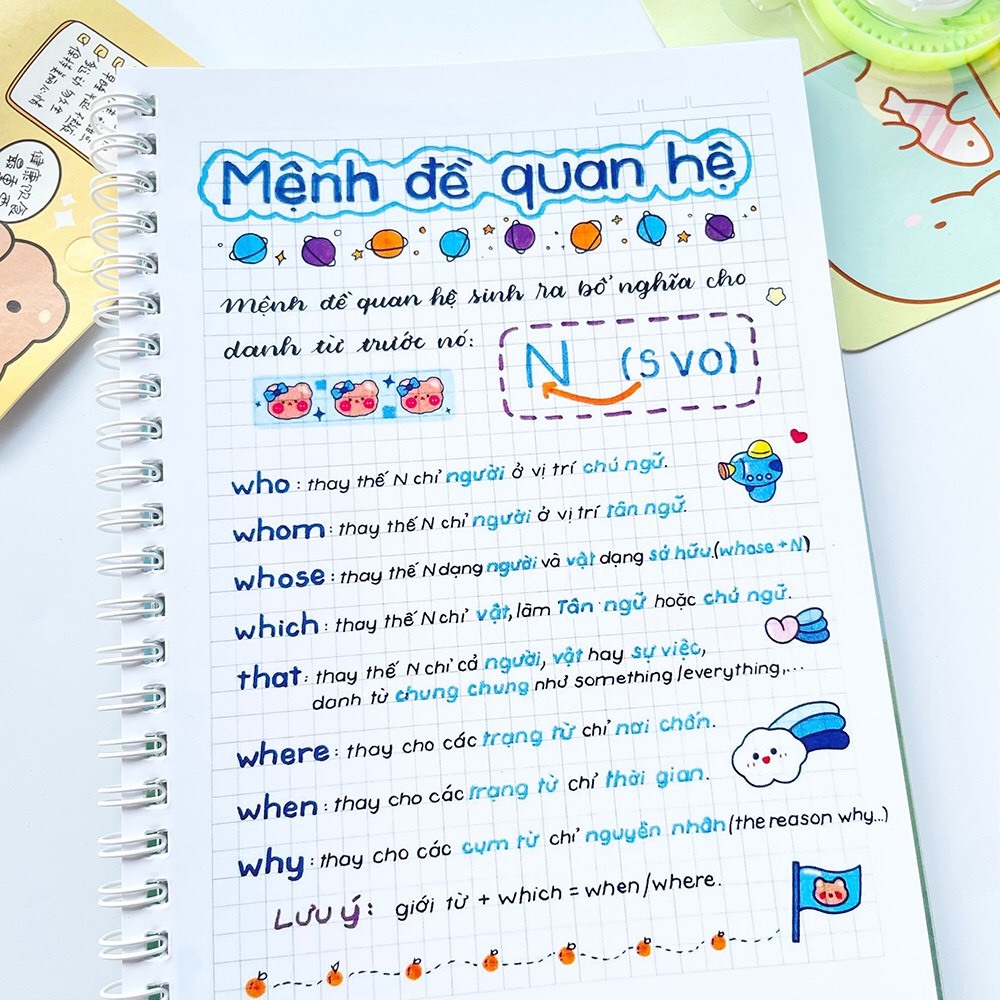 Mệnh đề quan hệ
Mệnh đề quan hệ sinh ra bổ nghĩa cho
danh từ trước nó:
N (S VO)
who : thay thế N chỉ người ở vị trí chủ ngữ.
whom : thay thế N chỉ người ở vị trí tân ngữ.
whose : thay thế N dạng người và vật dạng sở hữu.(whose + N)
which : thay thế N chỉ vật, làm Tân ngữ hoặc chủ ngữ.
that : thay thế N chỉ cả người, vật hay sự việc,
danh từ chung chung như something/everything,...
where : thay cho các trạng từ chỉ nơi chốn.
when : thay cho các trạng từ chỉ thời gian.
why : thay cho các cụm từ chỉ nguyên nhân (the reason why...)
Lưu ý : giới từ + which = when/where.